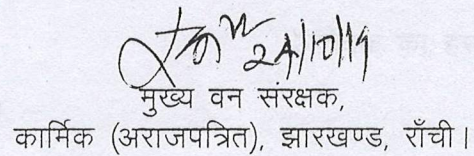 24/10/19
मुख्य वन संरक्षक,
कार्मिक (अराजपत्रित), झारखण्ड, राँची।